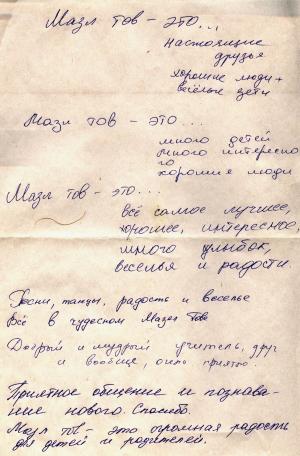 Мазл тов – это...
настоящие
друзья
хорошие люди +
весёлые дети
Мазл тов – это...
много детей
много интересно
го
хорошие люди
Мазл тов – это...
всё самое лучшее,
хорошее, интересное,
много улыбок,
веселья и радости.
Песни, танцы, радость и веселье
Всё в чудесном Мазел Тов
Добрый и мудрый учитель, друг
и вообще, очень приятно.
Приятное общение и познава-
ние нового. Спасибо.
Мазл тов – это огромная радость
для детей и родителей.